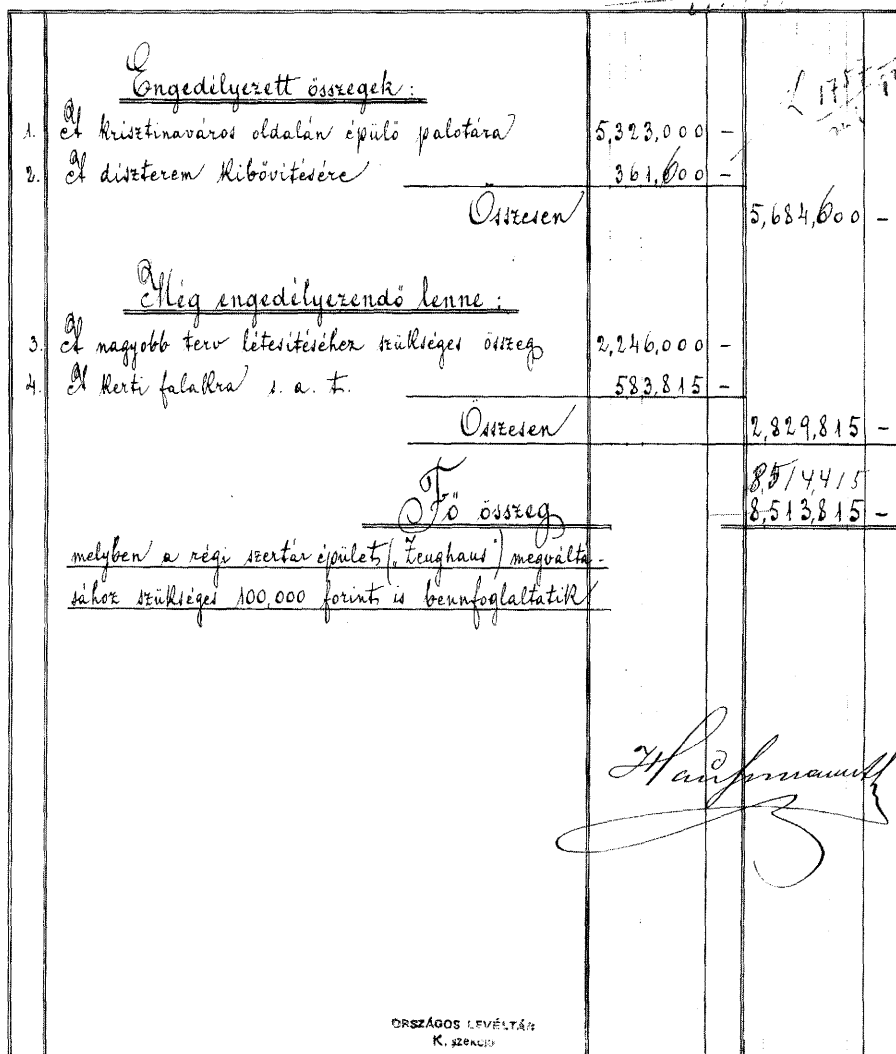 Engedélyezett összegek:
1. A krisztinaváros oldalán épülő palotára 5,323,000 -
2. A diszterem kibővitésére 361,600 -
Összesen 5,684,600 -
Még engedélyezendő lenne:
3. A nagyobb terv létesitéséhez szükséges összeg 2,246,000 -
4. A kerti falakra s. a. t. 583,815 -
Összesen 2,829,815 -
8,514415
Fő összeg 8,513,815 -
melyben a régi szertár épület („Zeughaus") megváltá-
sához szükséges 100,000 forint is bennfoglaltatik
ORSZÁGOS LEVÉLTÁR
K. szekció